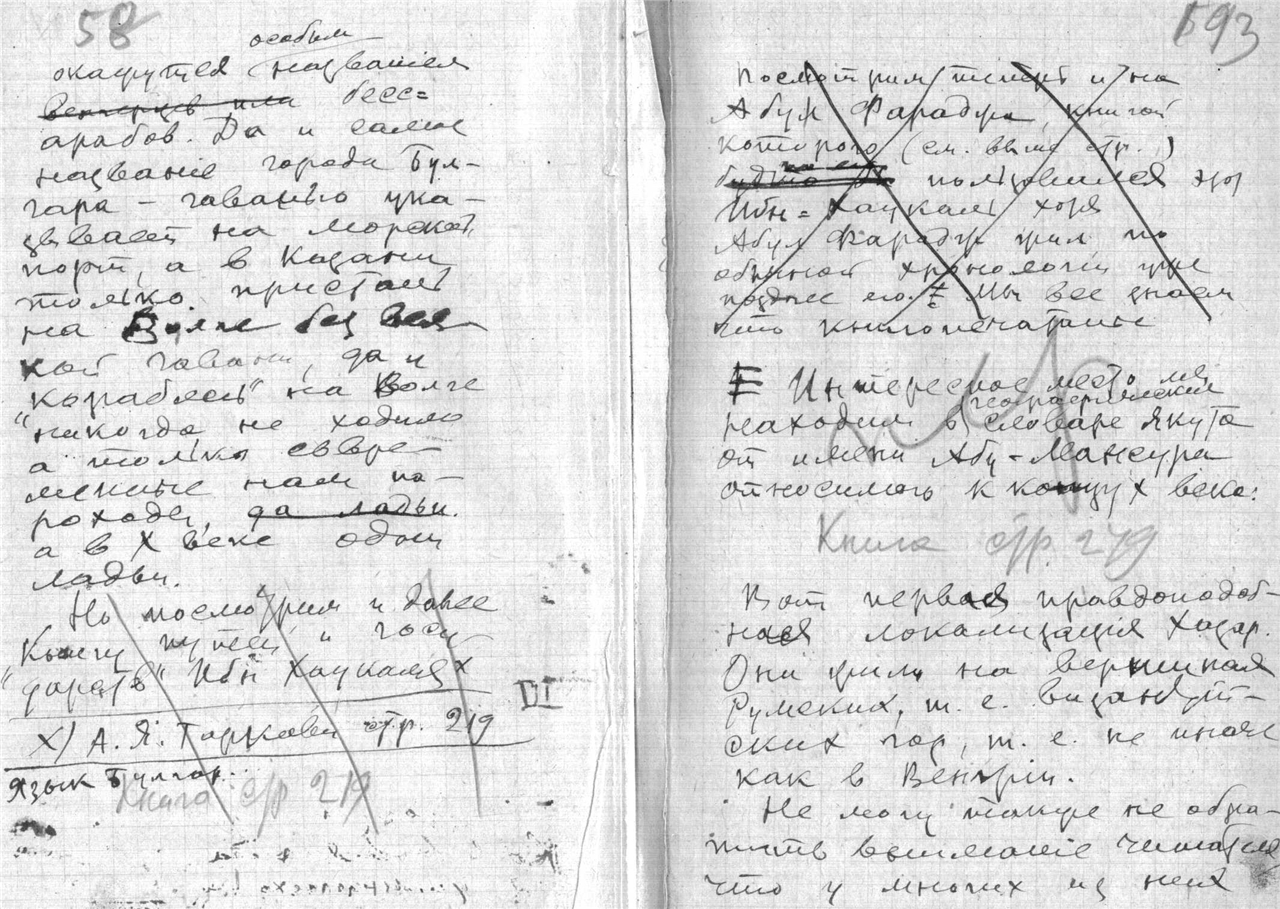 58
особым
окажутся названием
венгерцев или бесс=
арабов. Да и самое
название города Бул-
гара – гаванью ука-
зывает на морской
порт, а в Казани
только пристань
на Волге без вся
кой гавани, да и
кораблей" на Волге
"никогда не ходило
а только совре-
менные нам па-
роходы, да ладьи.
а в X веке одни
ладьи.
Но посмотрим и далее
Книгу путей и госу-
"дарств" Ибн Хаукаля x
III
X) А. Я. Гаркави стр. 219
Язык Булгар..
Книга стр 219
593
Посмотрим теперь и на
Абул Фараджа, книгой
которого (см. выше стр. )
будто бы пользовался этот
Ибн=Хаукаль хотя
Абул Фарадж жил по
обычной хронологии уже
позднее его. Мы все знаем
что книгопечатание
Интересное место мы
географическом
находим в словаре Якута
от имени Абу-Мансура
относимого к концу X века:
Книга стр. 219
Вот первая правдоподоб-
ная локализация Хазар.
Они жили на вершинах
Румских, т. е. византий-
ских гор, т. е. не иначе
как в Венгрии.
Не могу также не обра-
тить внимание читателя
что у многих из них